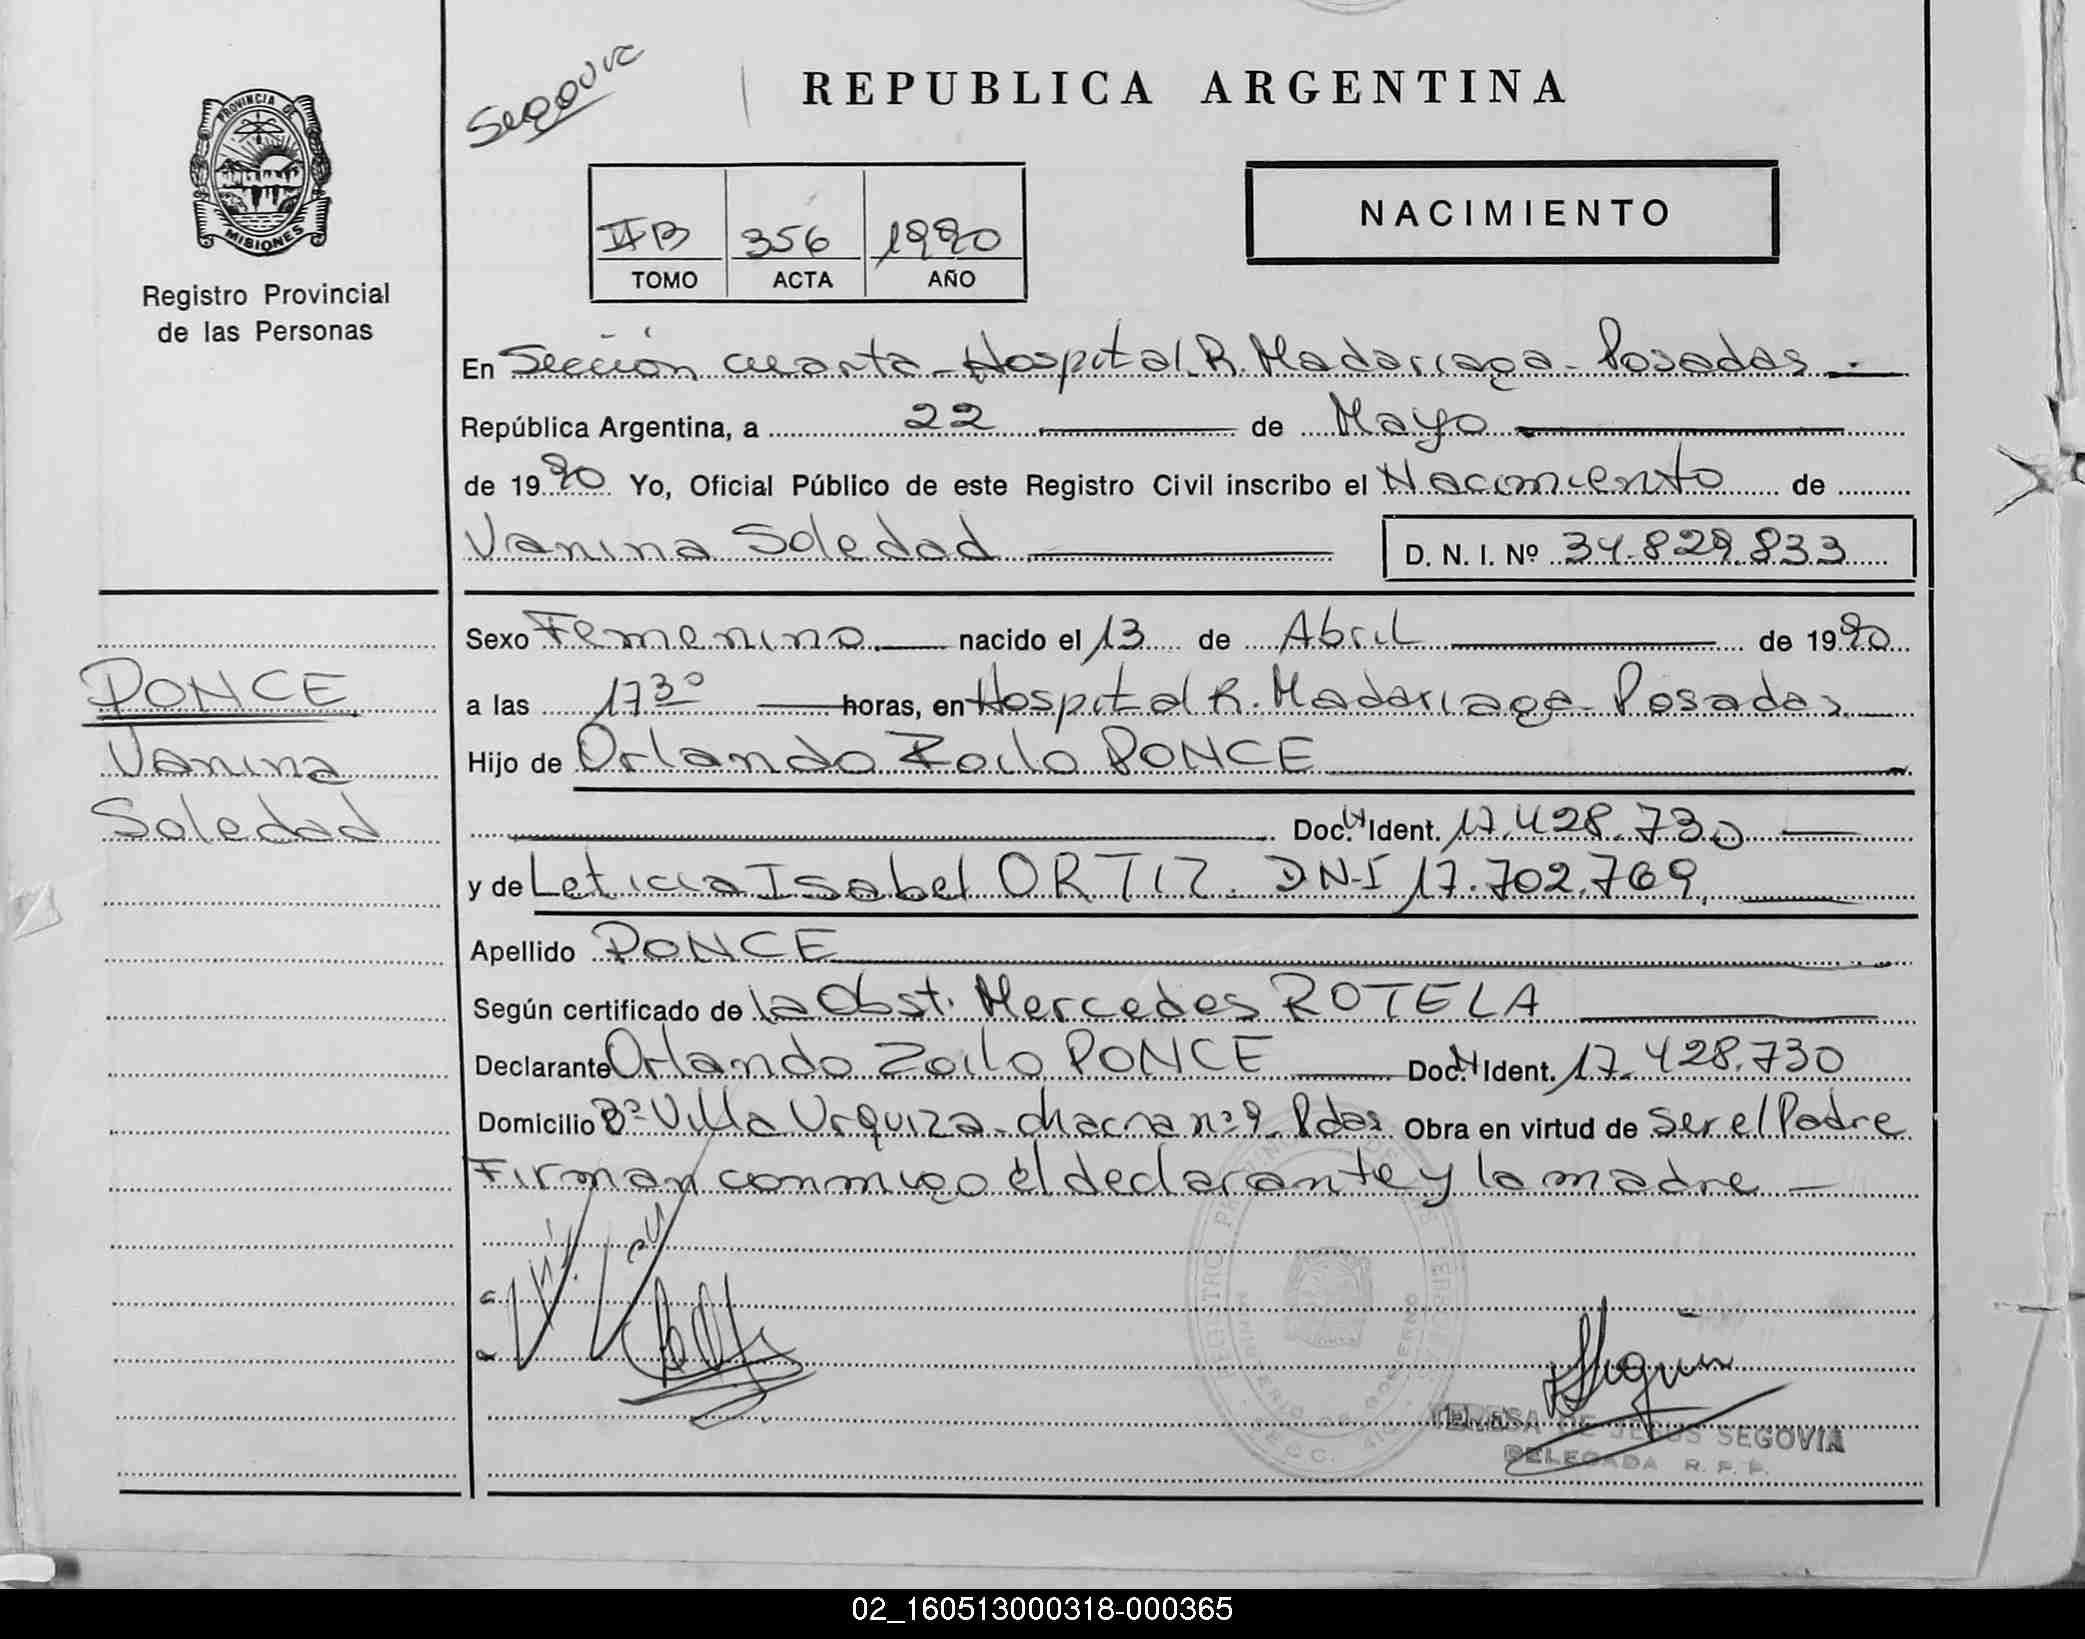 Segovia
REPUBLICA ARGENTINA
PROVINCIA DE
MISIONES
Registro Provincial
de las Personas
II B 356 1990
TOMO ACTA AÑO
NACIMIENTO
En Sección cuarta - Hospital R. Madariaga - Posadas
República Argentina, a 22 de Mayo
de 1990 Yo, Oficial Público de este Registro Civil inscribo el Nacimiento de
Vanina Soledad D. N. I. Nº 34.829.833
Sexo Femenino nacido el 13 de Abril de 1990
PONCE
Vanina
Soledad
a las 17 30 horas, en Hospital R. Madariaga - Posadas
Hijo de Orlando Zoilo PONCE
Doc. Ident. 17.428.730
y de Leticia Isabel ORTIZ. DNI 17.702.769
Apellido PONCE
Según certificado de la Obst. Mercedes ROTELA
Declarante Orlando Zoilo PONCE Doc. Ident. 17.428.730
Domicilio Bº Villa Urquiza - chacra nº 9 - Pdas Obra en virtud de ser el Padre
Firman conmigo el declarante y la madre
TERESA DE JESUS SEGOVIA
DELEGADA R. P. P.
02_160513000318-000365